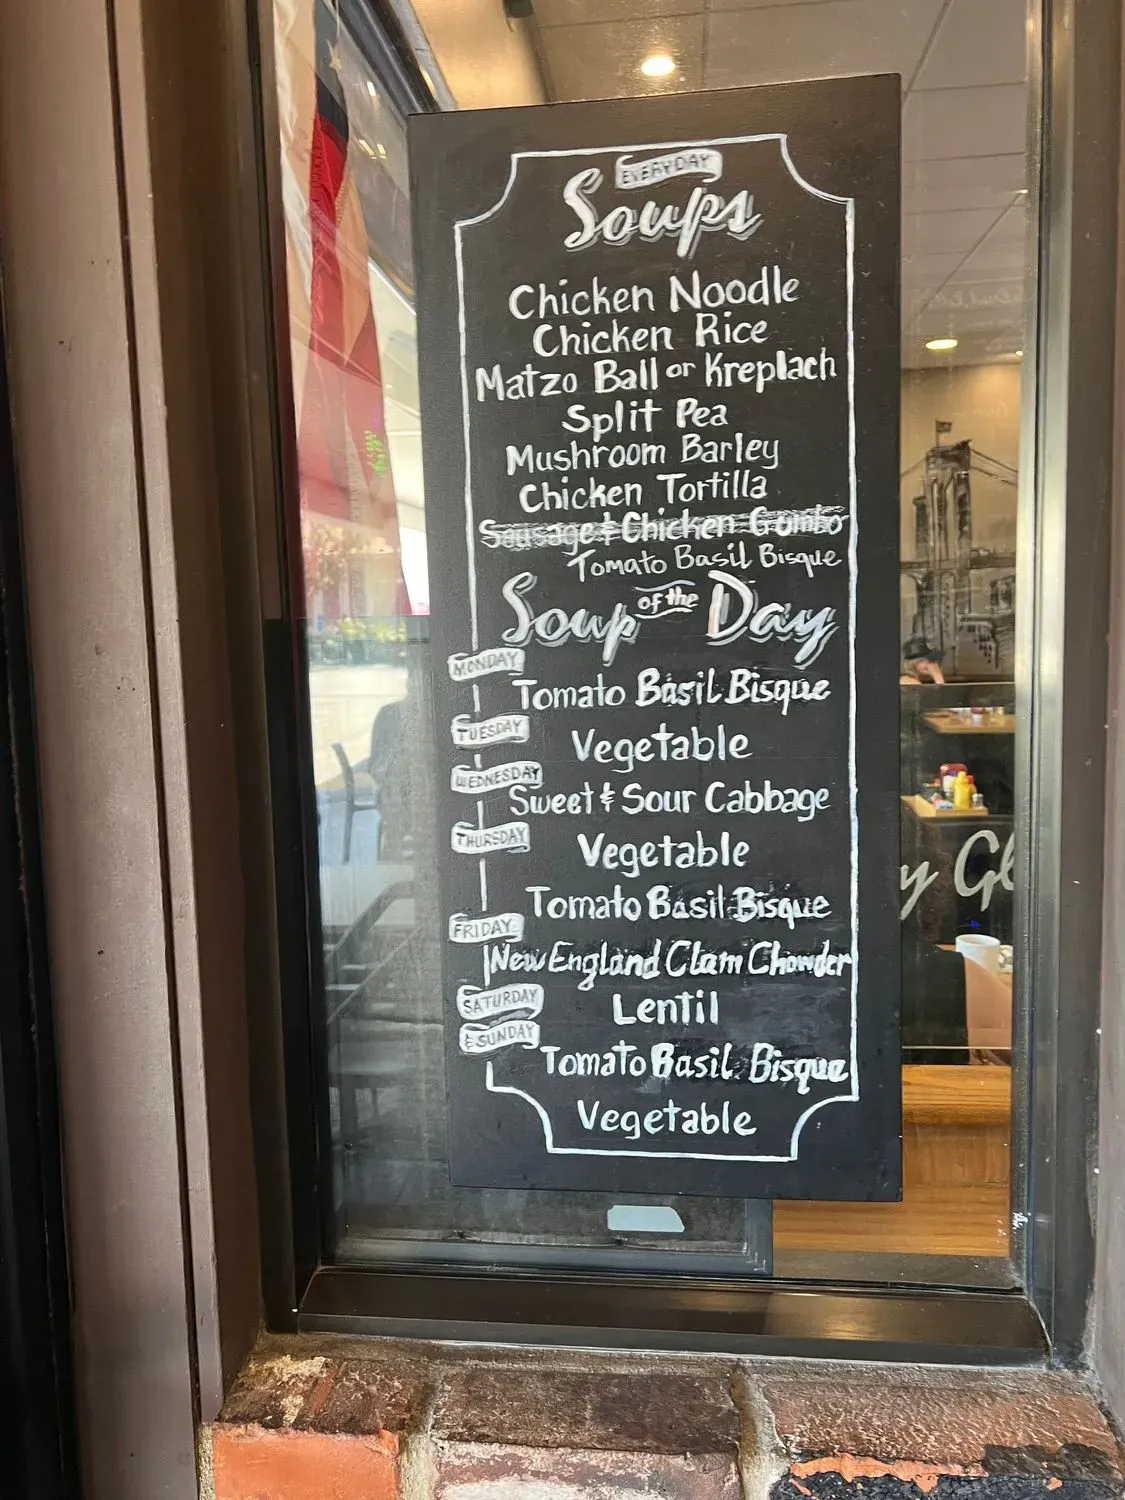 EVERYDAY
Soups
Chicken Noodle
Chicken Rice
Matzo Ball or Kreplach
Split Pea
Mushroom Barley
Chicken Tortilla
Sausage & Chicken Gumbo
Tomato Basil Bisque
Soup of the Day
MONDAY
Tomato Basil Bisque
TUESDAY
Vegetable
WEDNESDAY
Sweet & Sour Cabbage
THURSDAY
Vegetable
Tomato Basil Bisque
FRIDAY
New England Clam Chowder
SATURDAY
Lentil
& SUNDAY
Tomato Basil Bisque
Vegetable